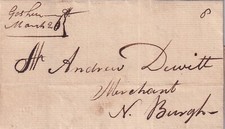 Goshen 8
March 26
Mr Andrew Dewitt
Merchant
N. Burgh